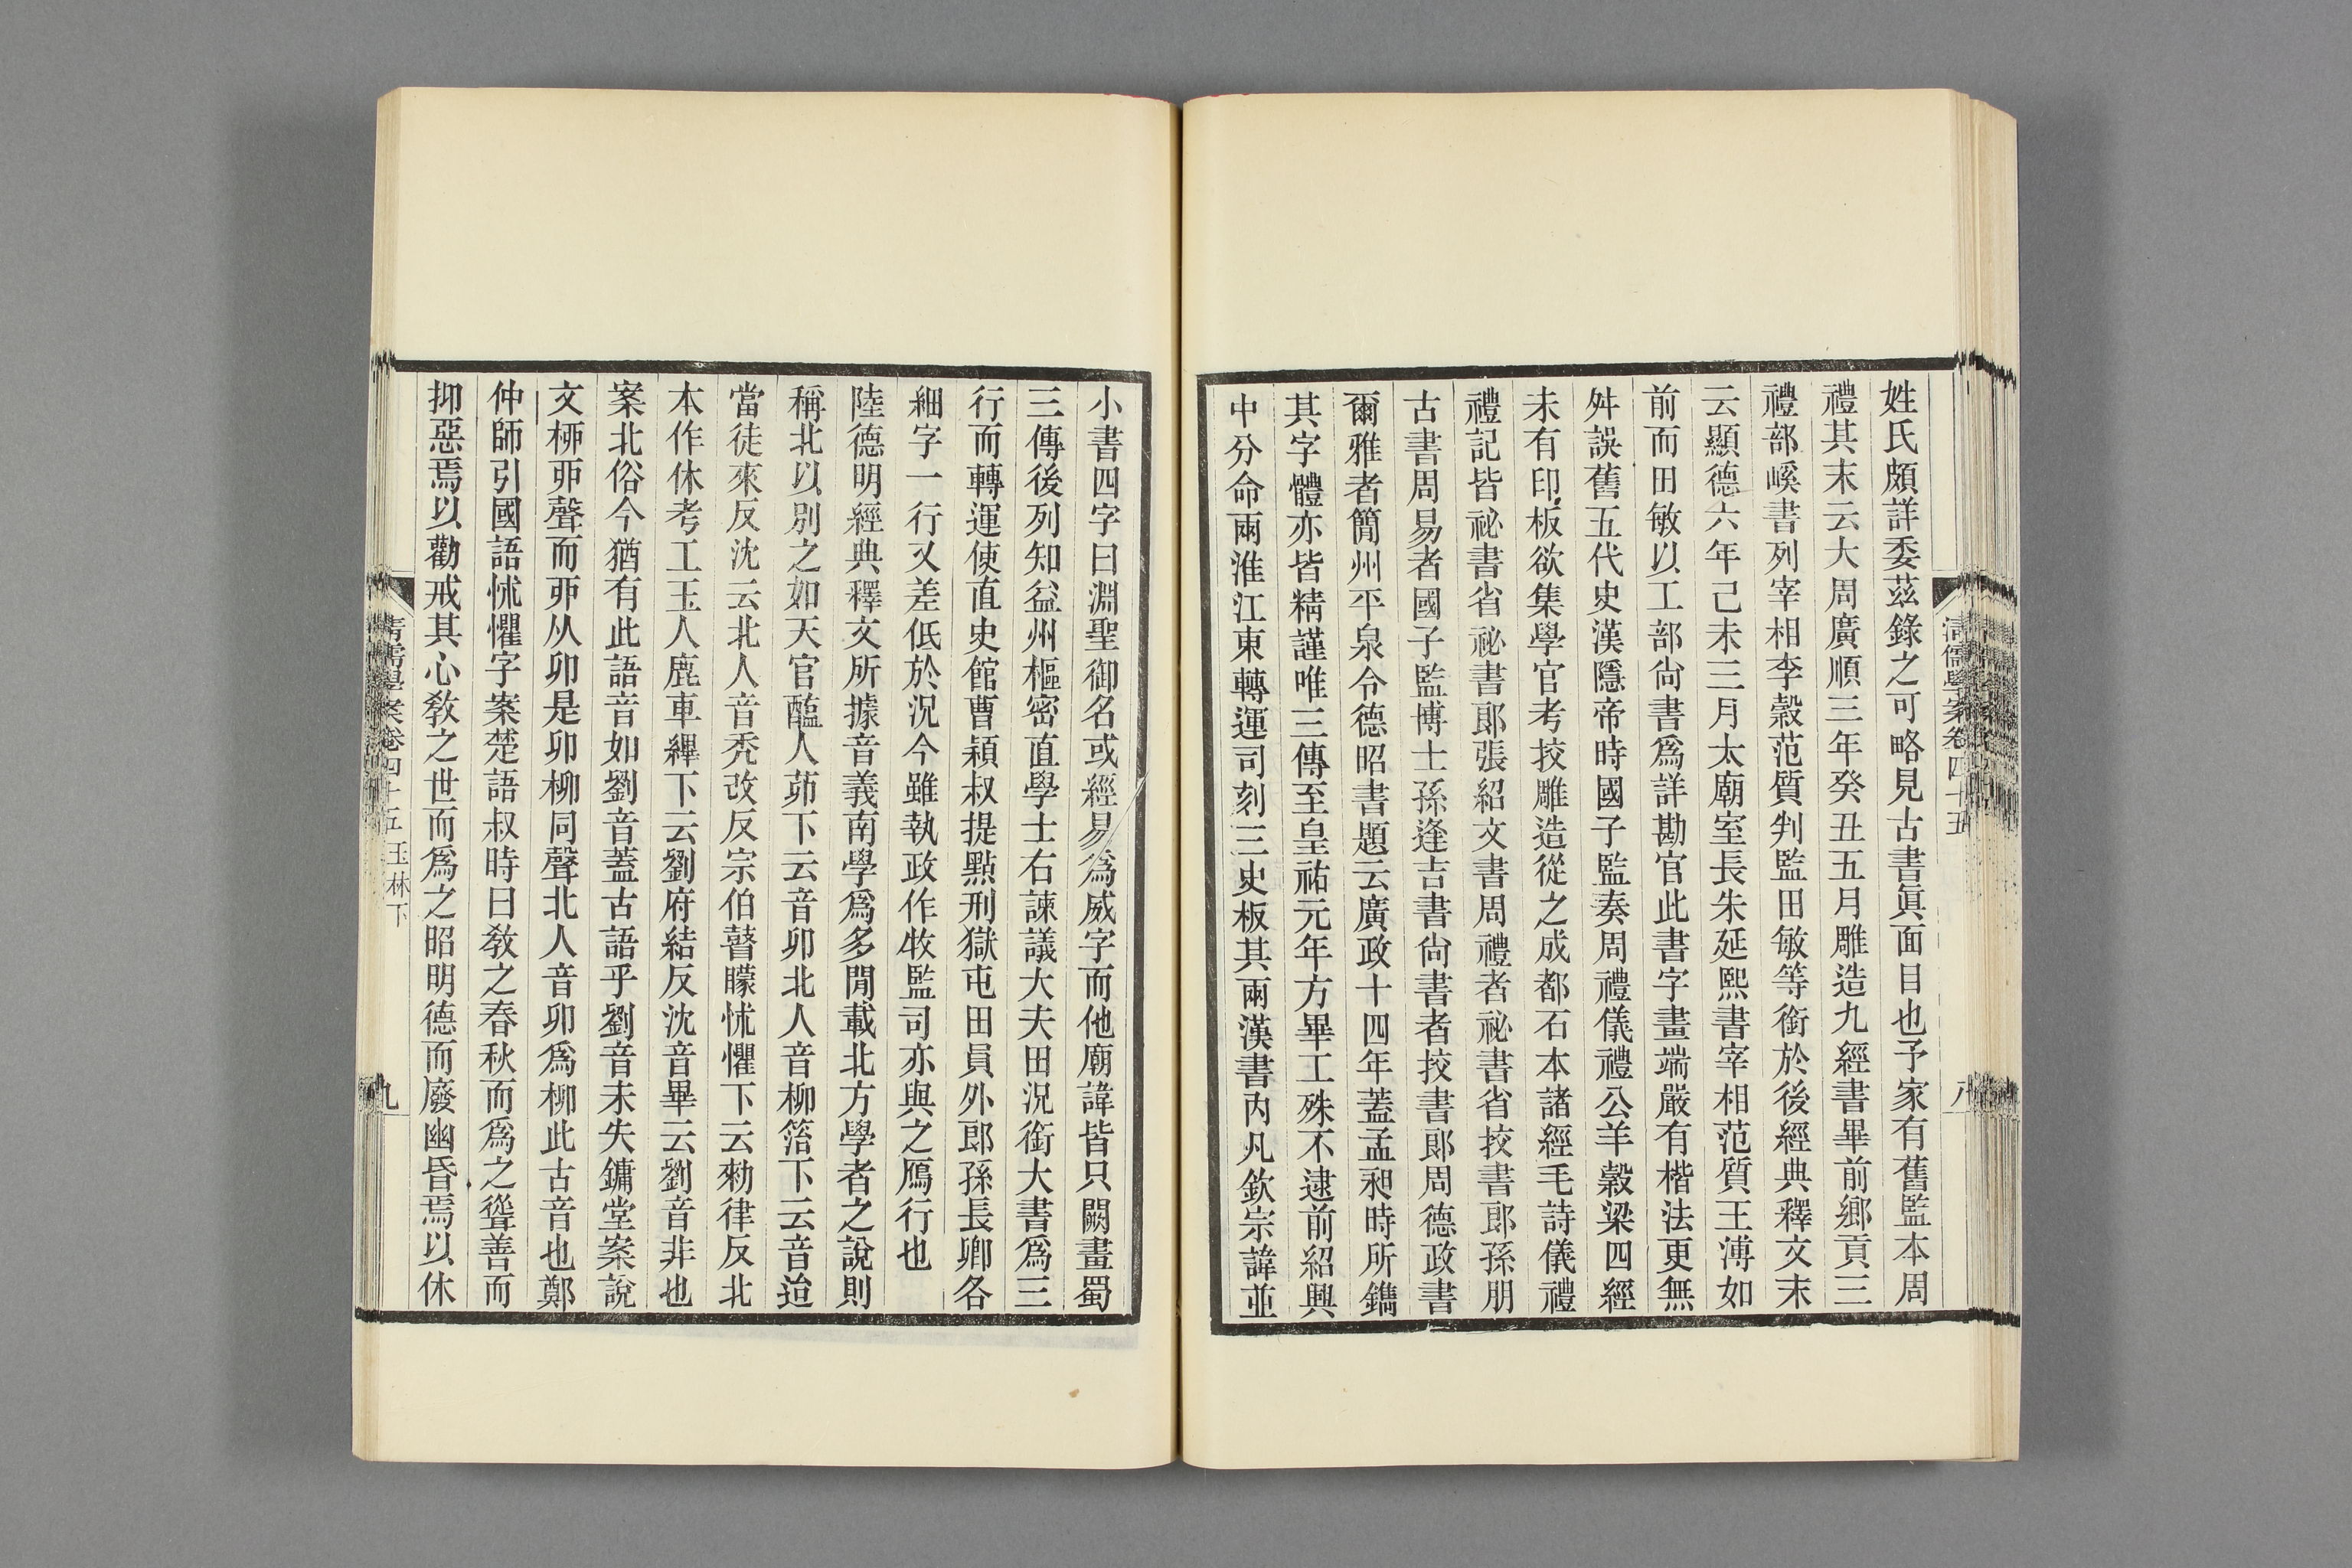 清儒學案卷四十五
八
姓氏頗詳委茲錄之可略見古書眞面目也予家有舊監本周
禮其末云大周廣順三年癸丑五月雕造九經書畢前鄉貢三
禮部嵠書列宰相李穀范質判監田敏等銜於後經典釋文末
云顯德六年己未三月太廟室長朱延熙書宰相范質王溥如
前而田敏以工部尙書爲詳勘官此書字畫端嚴有楷法更無
舛誤舊五代史漢隱帝時國子監奏周禮儀禮公羊穀梁四經
未有印板欲集學官考挍雕造從之成都石本諸經毛詩儀禮
禮記皆祕書省祕書郞張紹文書周禮者祕書省挍書郞孫朋
古書周易者國子監博士孫逢吉書尙書者挍書郞周德政書
爾雅者簡州平泉令德昭書題云廣政十四年蓋孟昶時所鐫
其字體亦皆精謹唯三傳至皇祐元年方畢工殊不逮前紹興
中分命兩淮江東轉運司刻三史板其兩漢書內凡欽宗諱並
小書四字曰淵聖御名或經易爲威字而他廟諱皆只闕畫蜀
三傳後列知益州樞密直學士右諫議大夫田況銜大書爲三
行而轉運使直史館曹穎叔提點刑獄屯田員外郞孫長卿各
細字一行又差低於況今雖執政作牧監司亦與之鴈行也
陸德明經典釋文所據音義南學爲多閒載北方學者之說則
稱北以別之如天官醢人茆下云音卯北人音柳箈下云音迨
當徒來反沈云北人音禿改反宗伯瞽矇怵懼下云勑律反北
本作休考工玉人鹿車縪下云劉府結反沈音畢云劉音非也
案北俗今猶有此語音如劉音蓋古語乎劉音未失鏞堂案說
文桺丣聲而丣从卯是卯柳同聲北人音卯爲柳此古音也鄭
仲師引國語怵懼字案楚語叔時曰敎之春秋而爲之聳善而
抑惡焉以勸戒其心敎之世而爲之昭明德而廢幽昏焉以休
清儒學案卷四十五 玉林下
九